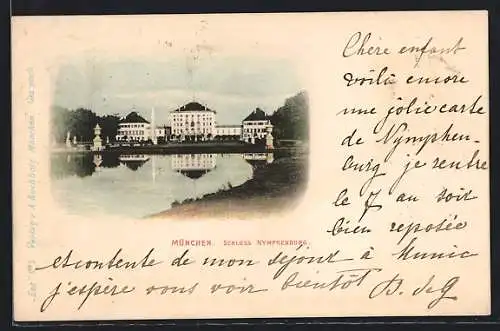 Chère enfant
voilà encore
une jolie carte
de Nymphen-
burg je rentre
le 7 au soir
bien reposée
et contente de mon séjour à Munic
j'espère vous voir bientôt B. de G
MÜNCHEN. SCHLOSS NYMPHENBURG.
Verlag v.
München